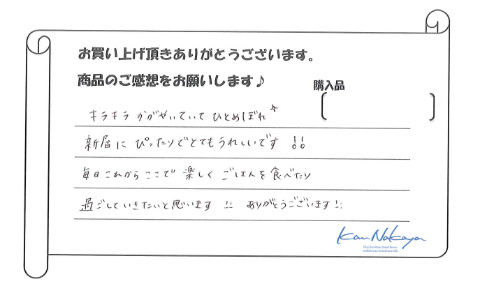 お買い上げ頂きありがとうございます。
商品のご感想をお願いします♪
購入品
キラキラ かがやいていて ひとめぼれ☆
新居に ぴったりでとてもうれしいです !!
毎日これから ここで 楽しく ごはんを 食べたり
過ごしていきたいと思います !! ありがとうございます!!
Kan Nakaya